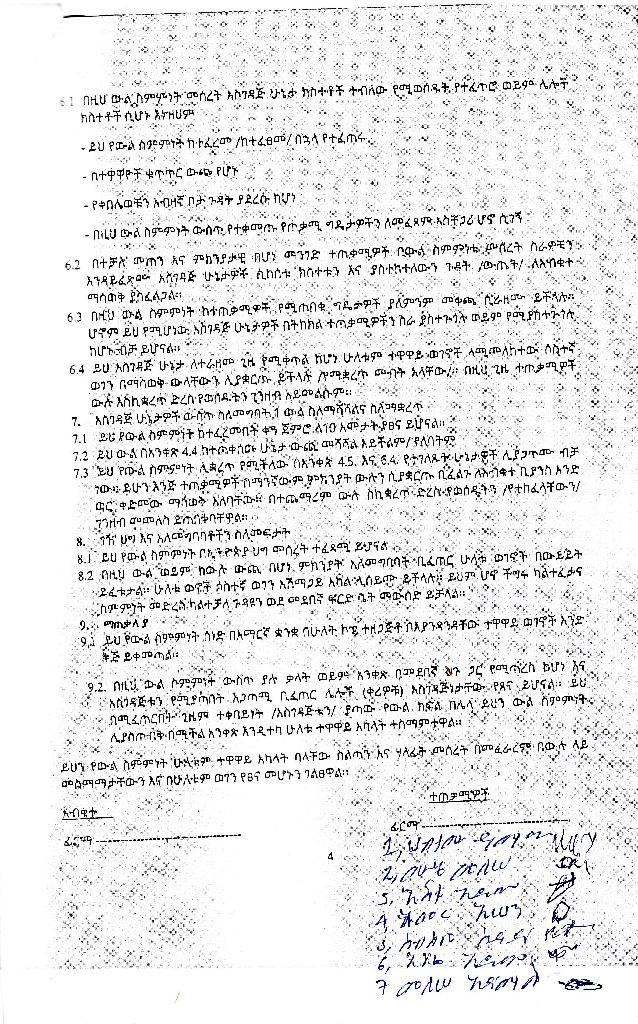 6.1 በዚህ ውል ስምምነት መሰረት አስገዳጅ ሁኔታ ክስተቶች ተብለው የሚወሰዱት የተፈጥሮ ወይም ሌሎች
ክስተቶች ሲሆኑ እነዚህም
- ይህ የውል ስምምነት ከተፈረመ /ከተፈፀመ/ በኋላ የተፈጠሩ
- ከተዋዋዮች ቁጥጥር ውጪ የሆኑ
- የቀበሌወቹን አብዛኛ ቦታ ጉዳት ያደረሱ ከሆነ
- በዚህ ውል ስምምነት ውስጥ የተቀመጡ የጠቃሚ ግዴታዎችን ለመፈጸም አስቸጋሪ ሆኖ ሲገኝ
6.2 በተቻለ መጠን እና ምክንያታዊ በሆነ መንገድ ተጠቃሚዎች በውል ስምምነቱ መሰረት ስራዎቹን
እንዳይፈጽሙ አስገዳጅ ሁኔታዎች ሲከሰቱ ክስተቱን እና ያስከተለውን ጉዳት /ውጤት/ ለአብቁተ
ማሳወቅ ያስፈልጋል።
6.3 በዚህ ውል ስምምነት ከተጠቃሚዎች የሚጠበቁ ግዴታዎች ያለምንም መቀጫ ሊራዘሙ ይችላሉ።
ሆኖም ይህ የሚሆነው አስገዳጅ ሁኔታዎች በትክክል ተጠቃሚዎችን ስራ ያስተጓጎሉ ወይም የሚያስተጓጉሉ
ከሆኑ ብቻ ይሆናል።
6.4 ይህ አስገዳጅ ሁኔታ ለተራዘመ ጊዜ የሚቀጥል ከሆነ ሁለቱም ተዋዋይ ወገኖች ለሚመለከተው ሶስተኛ
ወገን በማሳወቅ ውላቸውን ሊያቋርጡ ይችላሉ /የማቋረጥ መብት አላቸው/። በዚህ ጊዜ ተጠቃሚዎች
ውሉ እስኪቋረጥ ድረስ የወሰዱትን ገንዘብ አይመልሱም።
7. አስገዳጅ ሁኔታዎች ውስጥ ስለመግባት፣ ውል ስለማሻሻልና ስለማቋረጥ
7.1 ይህ የውል ስምምነት ከተፈረመበት ቀን ጀምሮ ለ10 አመታት ያፀና ይሆናል።
7.2 ይህ ውል በአንቀጽ 4.4 ከተጠቀሰው ሁኔታ ውጪ መሻሻል አይችልም/ ያለበትም
7.3 ይህ የውል ስምምነት ሊቋረጥ የሚችለው በአንቀጽ 4.5. እና 6.4. የተገለፁት ሁኔታዎች ሊያጋጥሙ ብቻ
ነው። ይሁን እንጅ ተጠቃሚዎች በማንኛውም ምክንያት ውሉን ሲያቋርጡ ቢፈልጉ ለአብቁተ ቢያንስ አንድ
ወር ቀድመው ማሳወቅ አለባቸው። በተጨማሪም ውሉ ስኪቋረጥ ድረስ ያወሰዱትን /የተከፈላቸውን/
ገንዘብ መመለስ ይጠበቅባቸዋል።
8. ገዥ ህግ እና አለመግባባቶችን ስለመፍታት
8.1 ይህ የውል ስምምነት በኢትዮጵያ ህግ መሰረት ተፈጻሚ ይሆናል
8.2 በዚህ ውል ወይም ከውሉ ውጪ በሆነ ምክንያት አለመግባባት ቢፈጠር ሁለቱ ወገኖች በውይይት
ይፈቱታል። ሁለቱ ወኖች ሶስተኛ ወገን አሸማጋይ አካል ሊሰይሙ ይችላሉ። ይህም ሆኖ ችግሩ ካልተፈታና
ስምምነት መድረስ ካልተቻለ ጉዳዩን ወደ መደበኛ ፍርድ ቤት መውሰድ ይቻላል።
9. ማጠቃለያ
9.1 ይህ የውል ስምምነት ሰነድ በአማርኛ ቋንቋ በሁለት ኮፒ ተዘጋጅቶ በእያንዳንዳቸው ተዋዋይ ወገኖች እንድ
ቅጅ ይቀመጣል።
9.2. በዚህ ውል ስምምነት ውስጥ ያሉ ቃላት ወይም አንቀጽ በመደበኛ ህጉ ጋር የሚጣረስ ከሆነ እና
አስገዳጅቱን የሚያጣበት አጋጣሚ ቢፈጠር ሌሎች (ቀሪዎቹ) አስገዳጅነታቸው የጸና ይሆናል። ይህ
በሚፈጠርበት ጊዜም ተቀባይነት /አስገዳጅቱን/ ያጣው የውል ክፍል በሌላ ይህን ውል ስምምነት
ሊያስጠብቅ በሚችል አንቀጽ እንዲተካ ሁለቱ ተዋዋይ አካላት ተስማምተዋል።
ይህን የውል ስምምነት ሁለቱም ተዋዋይ አካላት ባላቸው ስልጣን እና ሃላፊት መሰረት በመፈራረም በውሉ ላይ
መስማማታቸውን እና በሁለቱም ወገን የፀና መሆኑን ገልፀዋል።
አብቁተ
ተጠቃሚዎች
ፊርማ
ፊርማ
4
1,
2, መሀሪ መለሠ
3,
4,
5,
6,
7 መለሠ አዳሙ